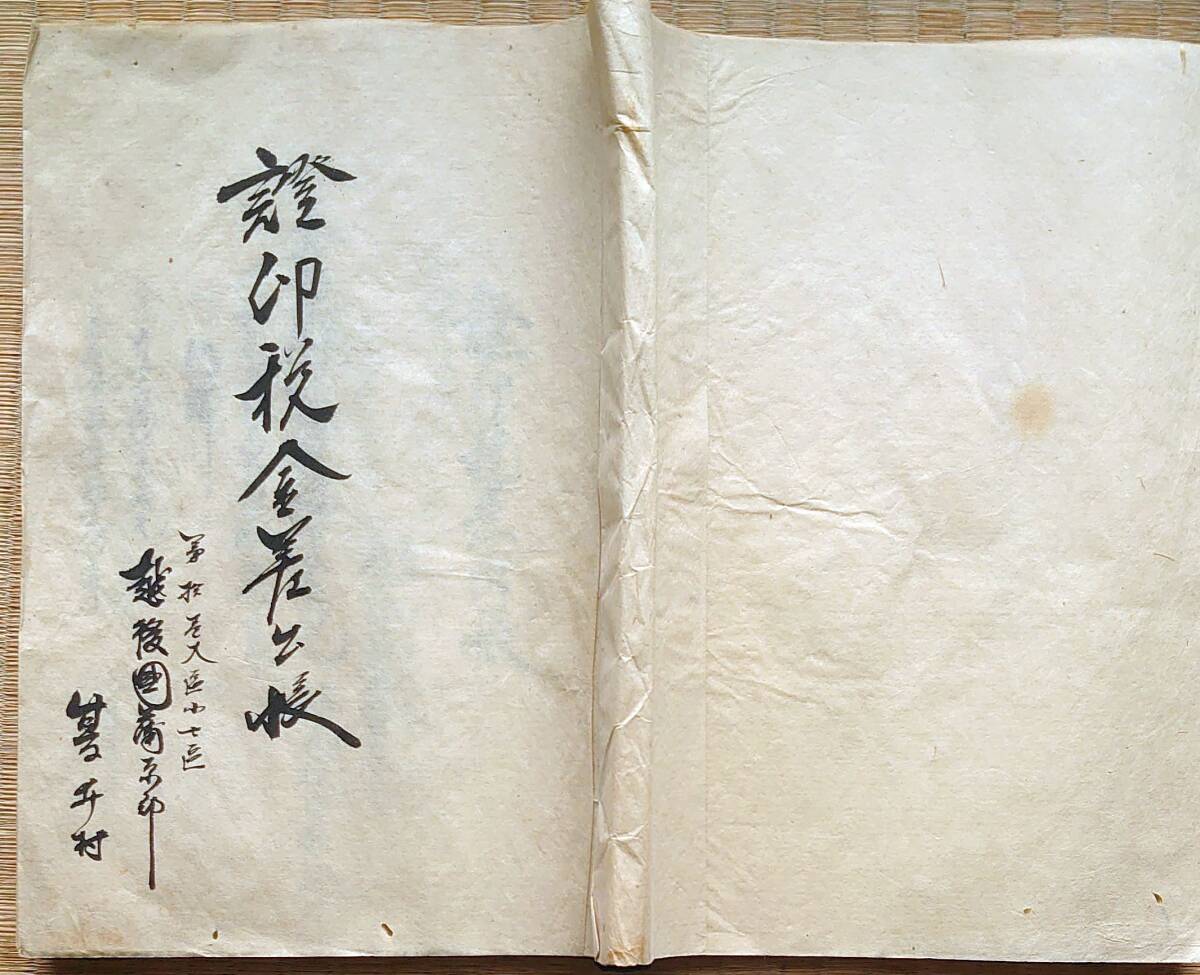 證印税金差出帳
第拾壱大區小七區
越後國蒲原郡
夏井村